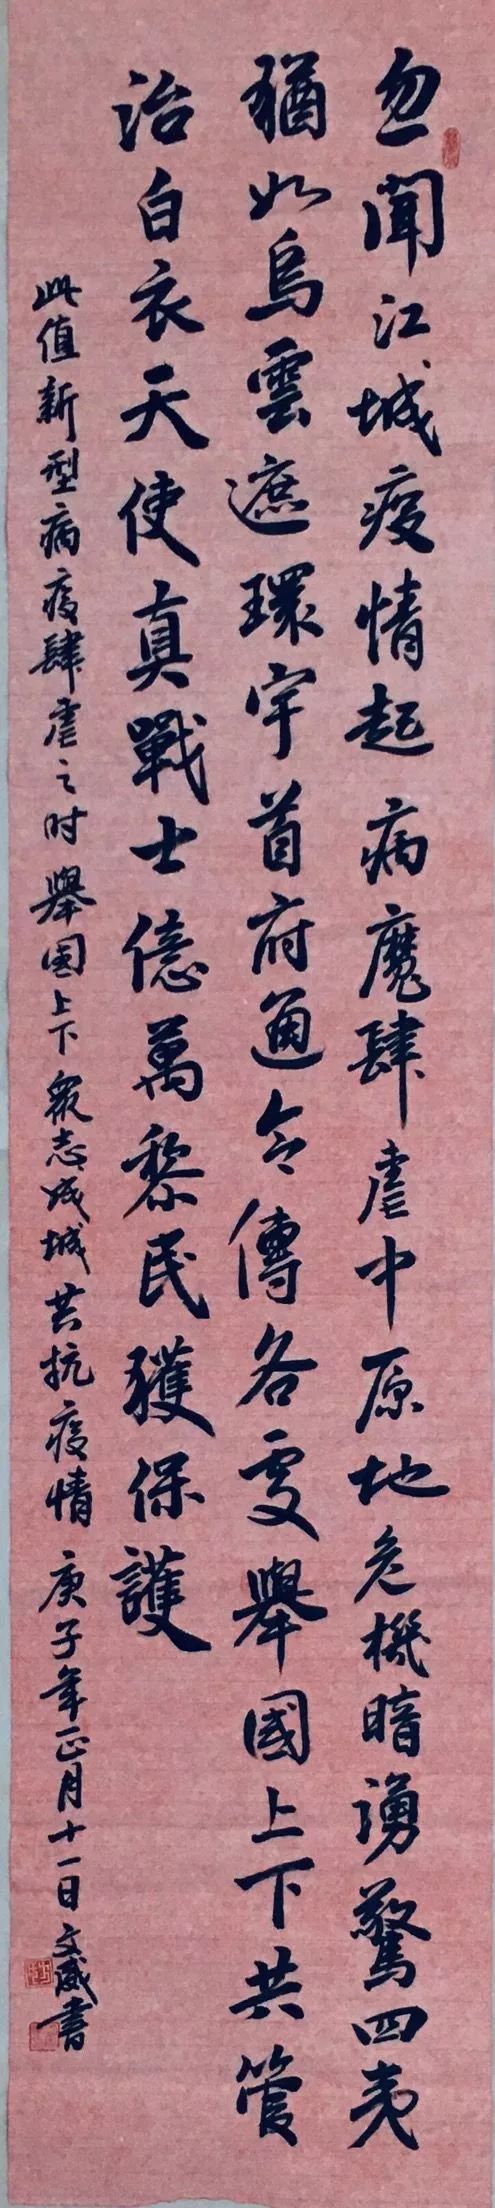 忽聞江城疫情起病魔肆虐中原地危機暗湧驚四夷
猶如烏雲遮環宇首府通令傳各處舉國上下共管
治白衣天使真戰士億萬黎民獲保護
此值新型病疫肆虐之时舉國上下眾志成城共抗疫情庚子年正月十一日文威書